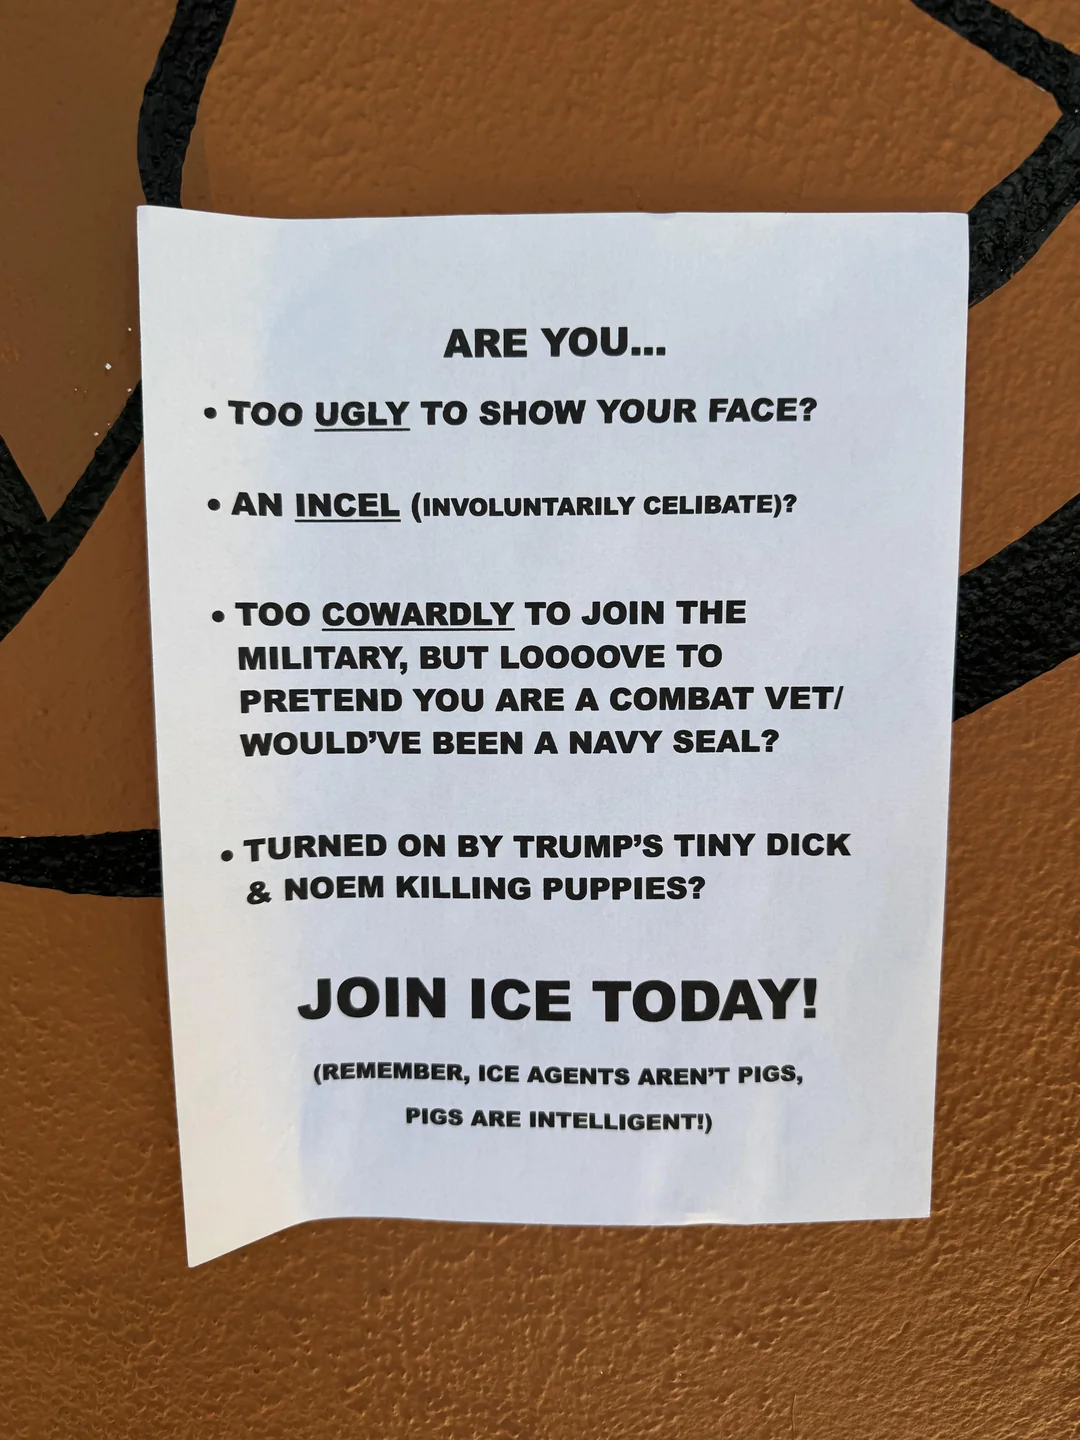 ARE YOU...
• TOO UGLY TO SHOW YOUR FACE?
• AN INCEL (INVOLUNTARILY CELIBATE)?
• TOO COWARDLY TO JOIN THE
MILITARY, BUT LOOOOVE TO
PRETEND YOU ARE A COMBAT VET/
WOULD'VE BEEN A NAVY SEAL?
• TURNED ON BY TRUMP'S TINY DICK
& NOEM KILLING PUPPIES?
JOIN ICE TODAY!
(REMEMBER, ICE AGENTS AREN'T PIGS,
PIGS ARE INTELLIGENT!)